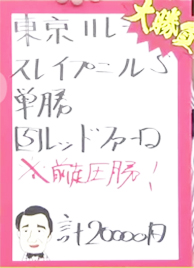 東京11レース
大勝負
スレイプニルS
単勝
⑮ルッドファーロ
※前走圧勝!
計20000円